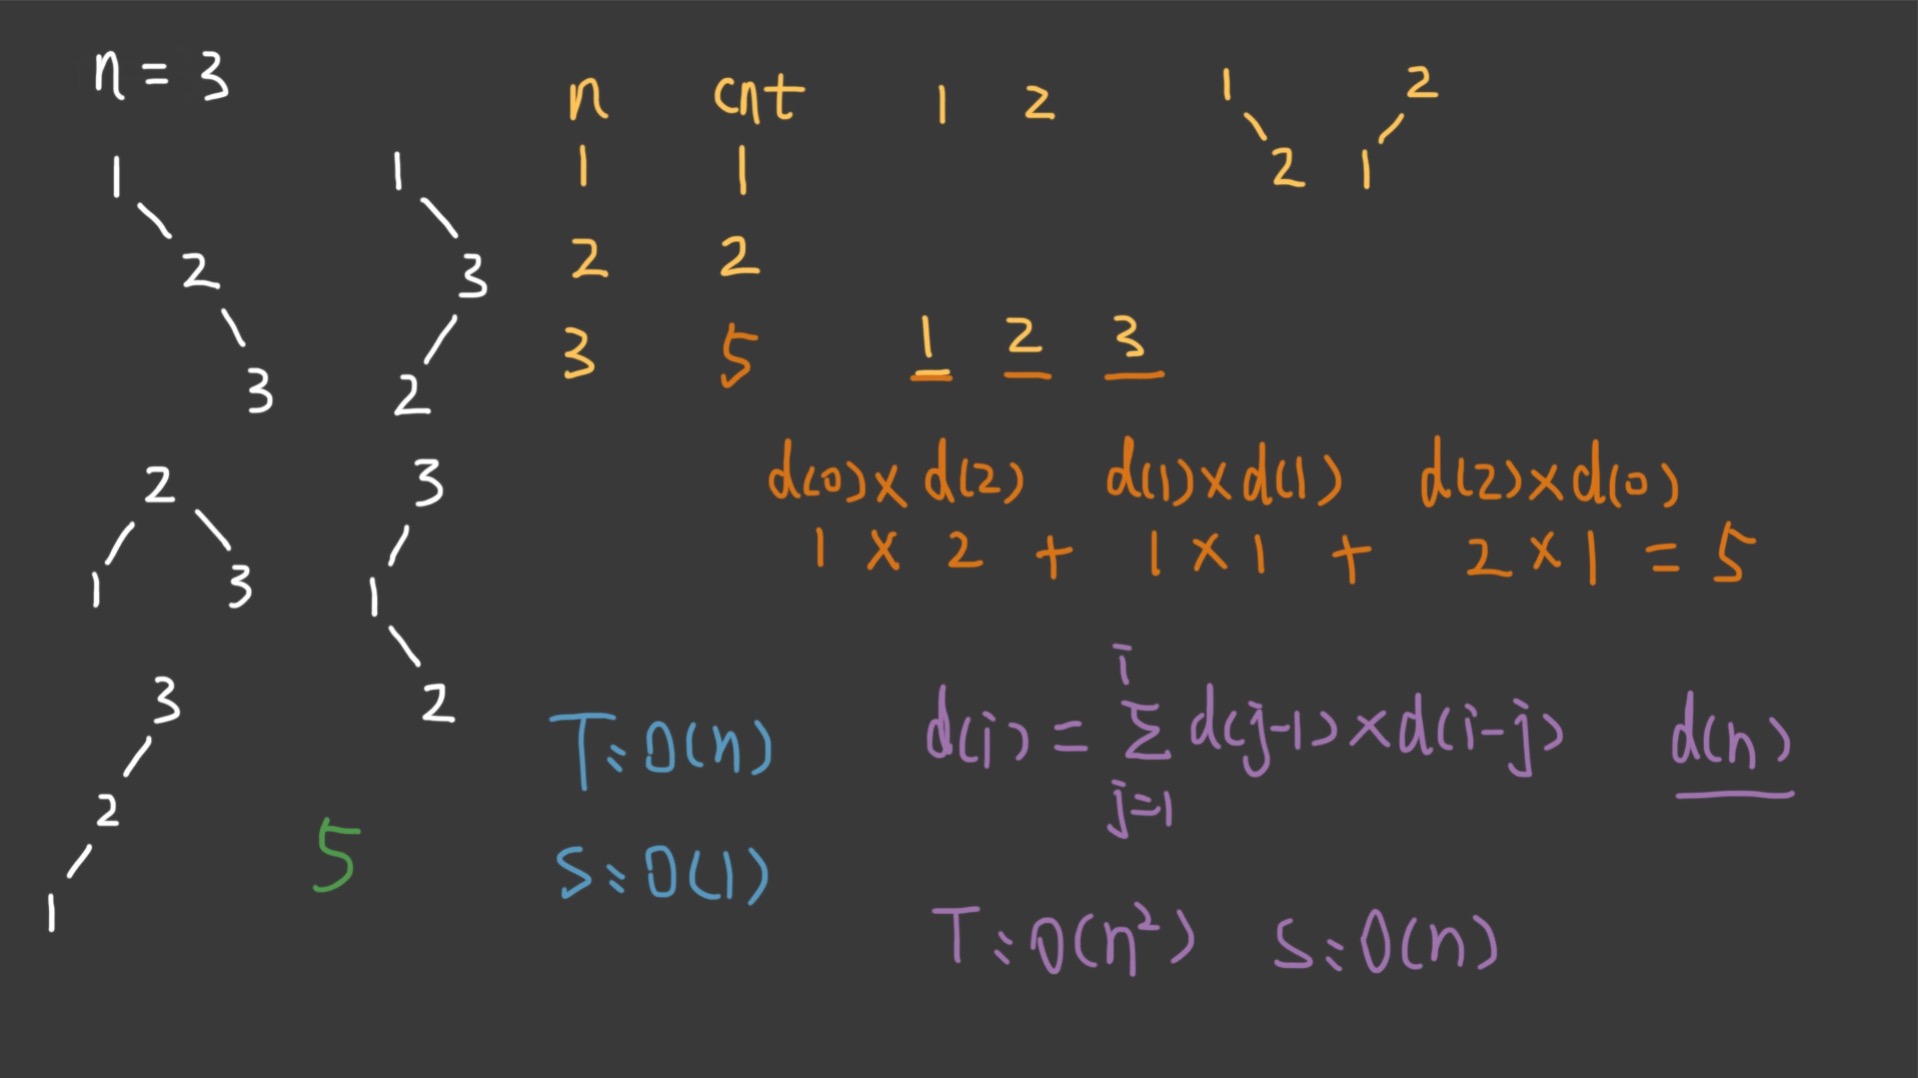 n = 3
1
2
3
1
3
2
2
1 3
3
1
2
3
2
1
5
n cnt
1 1
2 2
3 5
1 2
1
2
2
1
1 2 3
d(0)×d(2) d(1)×d(1) d(2)×d(0)
1 × 2 + 1 × 1 + 2 × 1 = 5
T: O(n)
S: O(1)
d(i) = Σ_{j=1}^{i} d(j-1)×d(i-j) d(n)
T: O(n²) S: O(n)